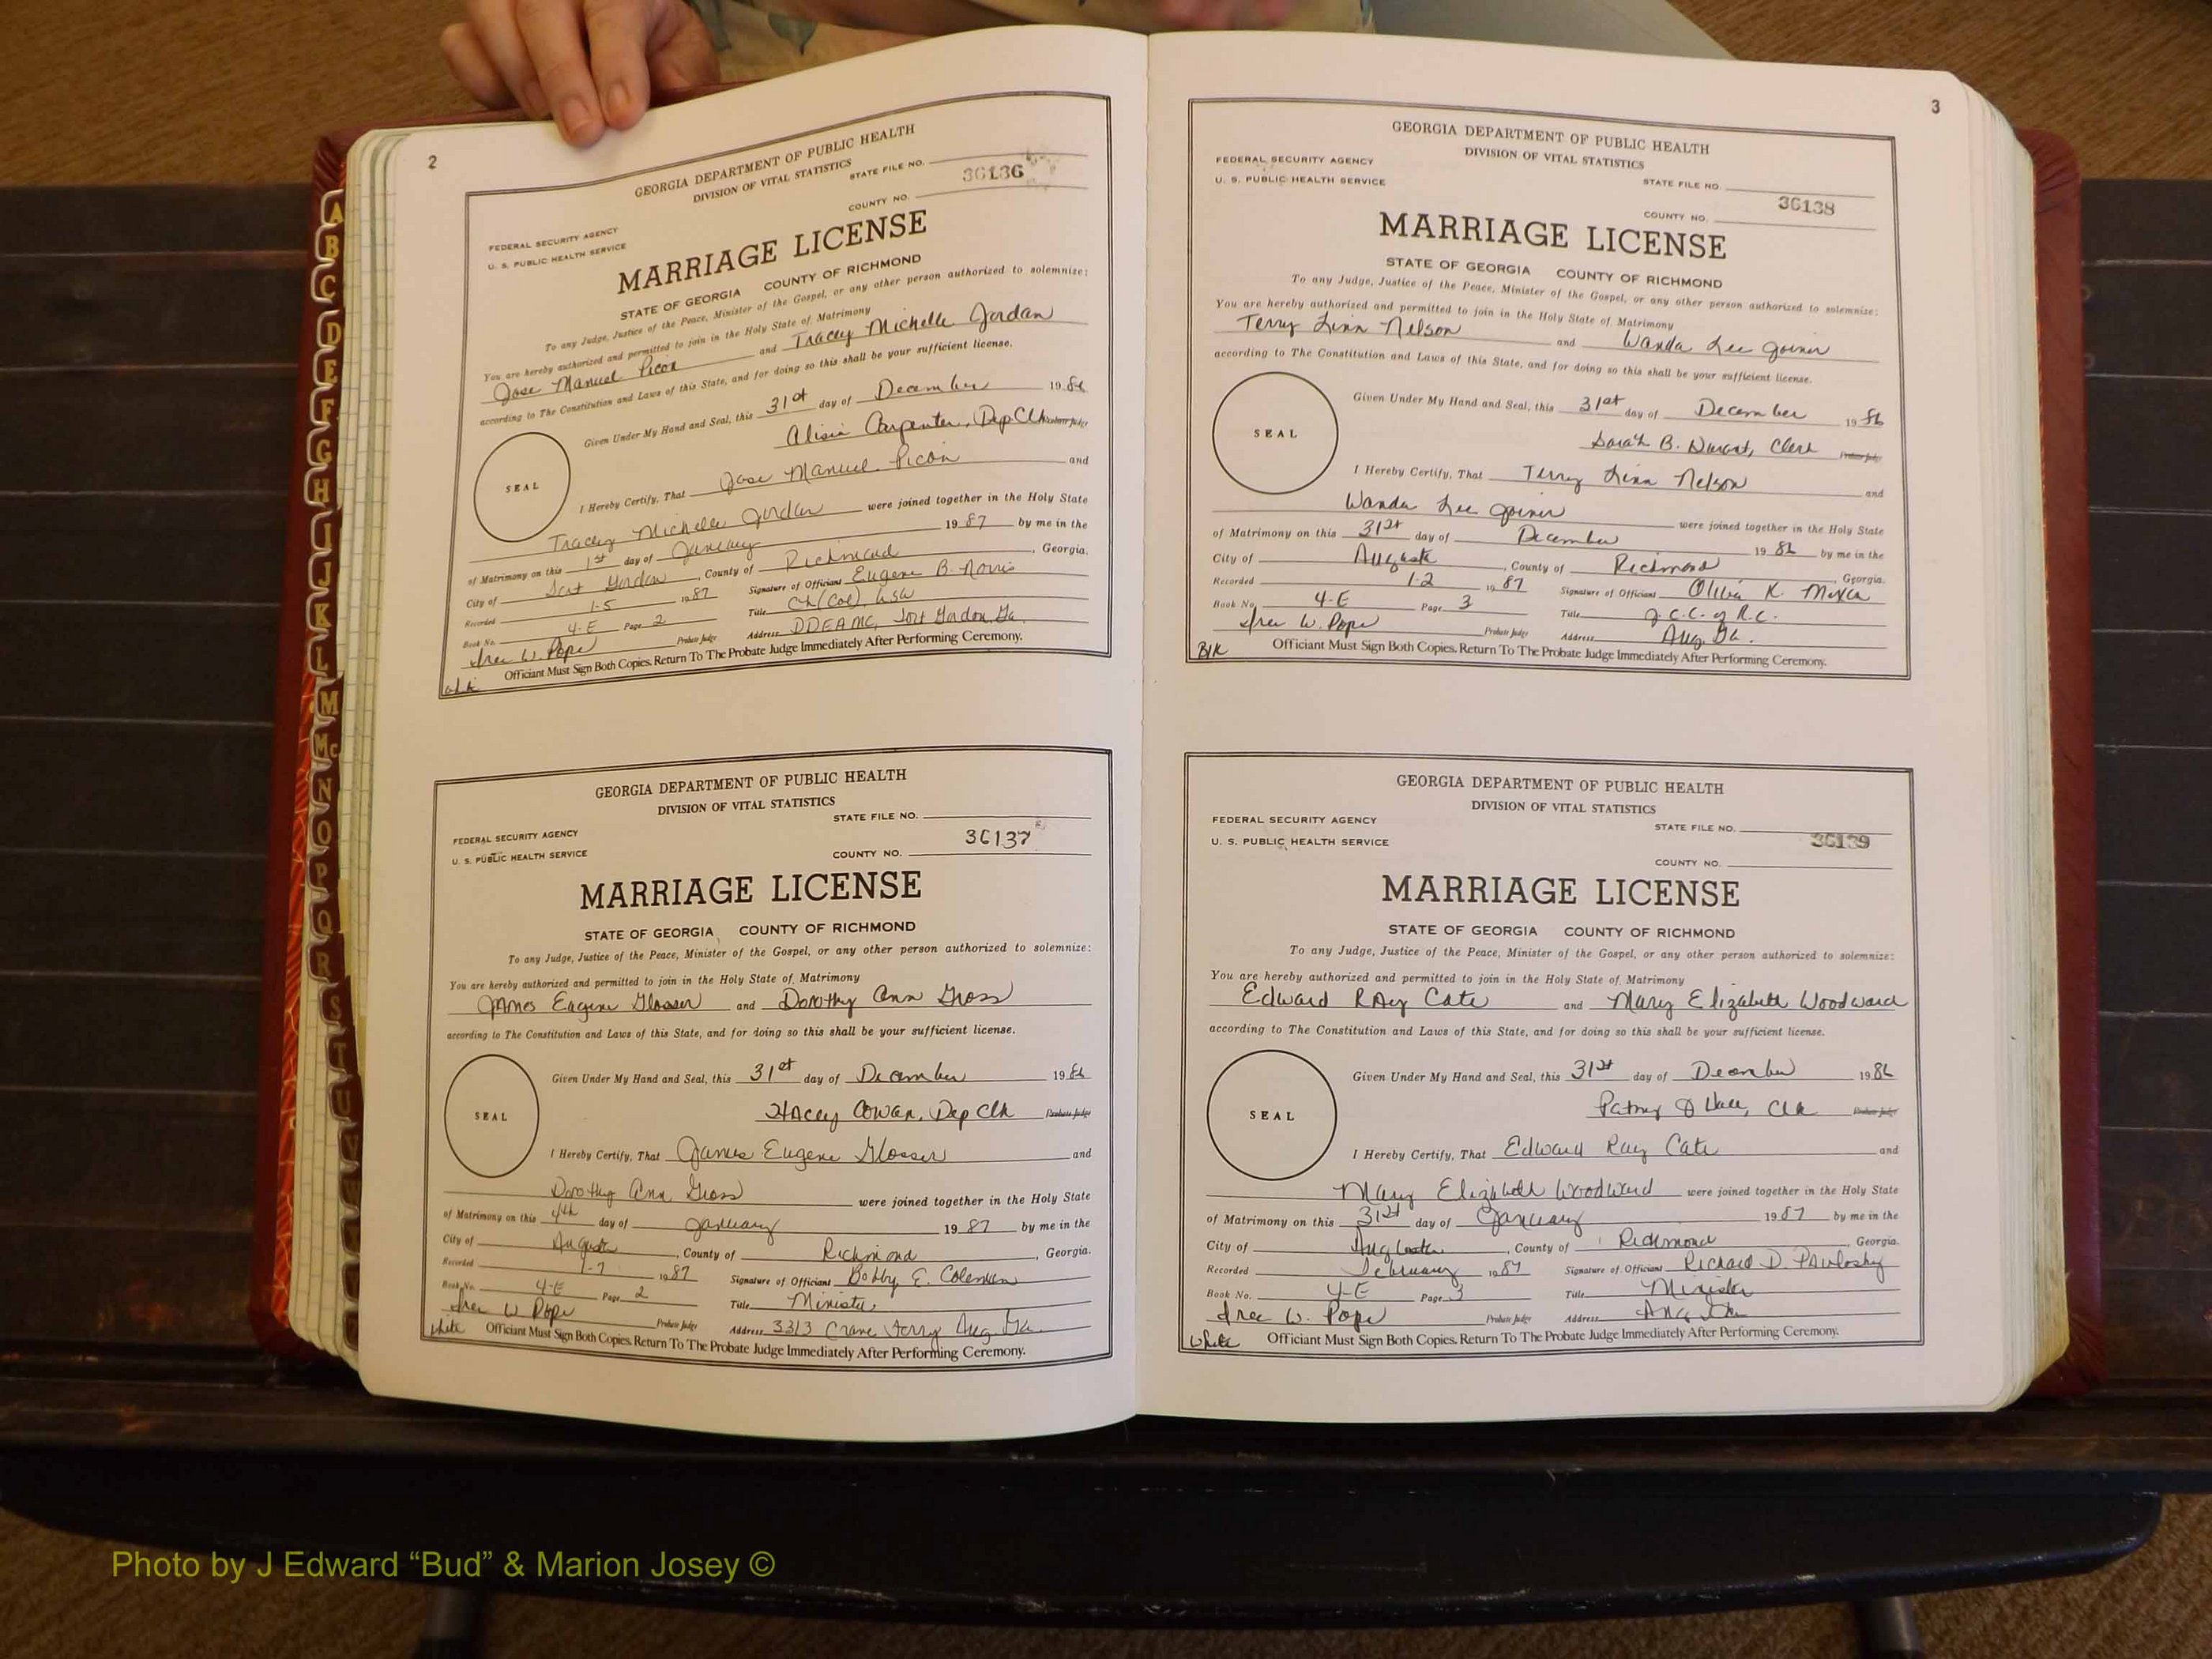 2
GEORGIA DEPARTMENT OF PUBLIC HEALTH
DIVISION OF VITAL STATISTICS
STATE FILE NO.
36136
FEDERAL SECURITY AGENCY
U. S. PUBLIC HEALTH SERVICE
COUNTY NO.
MARRIAGE LICENSE
STATE OF GEORGIA COUNTY OF RICHMOND
To any Judge, Justice of the Peace, Minister of the Gospel, or any other person authorized to solemnize:
You are hereby authorized and permitted to join in the Holy State of Matrimony
Jose Manuel Picon and Tracey Michelle Jordan
according to The Constitution and Laws of this State, and for doing so this shall be your sufficient license.
Given Under My Hand and Seal, this 31st day of December 1986
Alisia Carpenter, Dep Clk Probate Judge
SEAL
I Hereby Certify, That Jose Manuel Picon and
Tracey Michelle Jordan were joined together in the Holy State
of Matrimony on this 1st day of January 1987 by me in the
City of Fort Gordon, County of Richmond, Georgia.
Recorded 1-5 1987 Signature of Officiant Eugene B. Norris
Book No. 4-E Page 2 Title Ch (Col), USA
Iree W. Pope Probate Judge Address DDEAMC, Fort Gordon, Ga.
white Officiant Must Sign Both Copies. Return To The Probate Judge Immediately After Performing Ceremony.
GEORGIA DEPARTMENT OF PUBLIC HEALTH
DIVISION OF VITAL STATISTICS
STATE FILE NO.
FEDERAL SECURITY AGENCY
36137
U. S. PUBLIC HEALTH SERVICE
COUNTY NO.
MARRIAGE LICENSE
STATE OF GEORGIA COUNTY OF RICHMOND
To any Judge, Justice of the Peace, Minister of the Gospel, or any other person authorized to solemnize:
You are hereby authorized and permitted to join in the Holy State of Matrimony
James Eugene Glosser and Dorothy Ann Gross
according to The Constitution and Laws of this State, and for doing so this shall be your sufficient license.
Given Under My Hand and Seal, this 31st day of December 1986
Stacey Cowan, Dep Clk Probate Judge
SEAL
I Hereby Certify, That James Eugene Glosser and
Dorothy Ann Gross were joined together in the Holy State
of Matrimony on this 4th day of January 1987 by me in the
City of Augusta, County of Richmond, Georgia.
Recorded 1-7 1987 Signature of Officiant Bobby E. Coleman
Book No. 4-E Page 2 Title Minister
Iree W. Pope Probate Judge Address 3313 Crane Ferry Aug Ga.
white Officiant Must Sign Both Copies. Return To The Probate Judge Immediately After Performing Ceremony.
3
GEORGIA DEPARTMENT OF PUBLIC HEALTH
DIVISION OF VITAL STATISTICS
FEDERAL SECURITY AGENCY
U. S. PUBLIC HEALTH SERVICE
STATE FILE NO.
36138
COUNTY NO.
MARRIAGE LICENSE
STATE OF GEORGIA COUNTY OF RICHMOND
To any Judge, Justice of the Peace, Minister of the Gospel, or any other person authorized to solemnize:
You are hereby authorized and permitted to join in the Holy State of Matrimony
Terry Linn Nelson and Wanda Lee Joiner
according to The Constitution and Laws of this State, and for doing so this shall be your sufficient license.
Given Under My Hand and Seal, this 31st day of December 1986
Sarah B. Clerk Probate Judge
SEAL
I Hereby Certify, That Terry Linn Nelson and
Wanda Lee Joiner were joined together in the Holy State
of Matrimony on this 31st day of December 1986 by me in the
City of Augusta, County of Richmond, Georgia.
Recorded 1-2 1987 Signature of Officiant Olivia K.
Book No. 4-E Page 3 Title J.C.C. of R.C.
Iree W. Pope Probate Judge Address Aug. Ga.
Blk Officiant Must Sign Both Copies. Return To The Probate Judge Immediately After Performing Ceremony.
GEORGIA DEPARTMENT OF PUBLIC HEALTH
DIVISION OF VITAL STATISTICS
FEDERAL SECURITY AGENCY
STATE FILE NO.
U. S. PUBLIC HEALTH SERVICE
36139
COUNTY NO.
MARRIAGE LICENSE
STATE OF GEORGIA COUNTY OF RICHMOND
To any Judge, Justice of the Peace, Minister of the Gospel, or any other person authorized to solemnize:
You are hereby authorized and permitted to join in the Holy State of Matrimony
Edward Ray Cate and Mary Elizabeth Woodward
according to The Constitution and Laws of this State, and for doing so this shall be your sufficient license.
Given Under My Hand and Seal, this 31st day of December 1986
Clk Probate Judge
SEAL
I Hereby Certify, That Edward Ray Cate and
Mary Elizabeth Woodward were joined together in the Holy State
of Matrimony on this 31st day of January 1987 by me in the
City of Augusta, County of Richmond, Georgia.
Recorded February 1987 Signature of Officiant Richard D. Pavlosky
Book No. 4-E Page 3 Title Minister
Iree W. Pope Probate Judge Address Aug.
White Officiant Must Sign Both Copies. Return To The Probate Judge Immediately After Performing Ceremony.
A
B
C
D
E
F
G
H
I
J
K
L
M
Mc
N
O
P
Q
R
S
T
U
Photo by J Edward “Bud” & Marion Josey ©